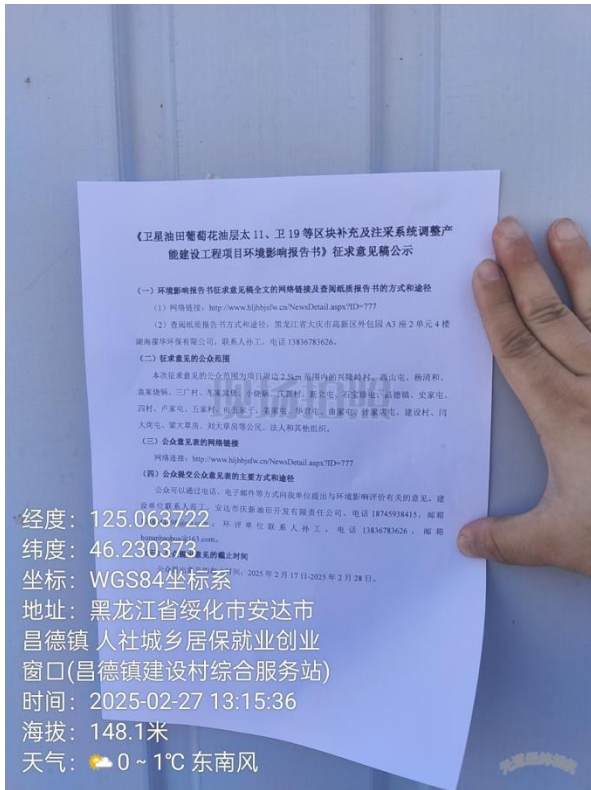 《卫星油田葡萄花油层太 11、卫 19 等区块补充及注采系统调整产
能建设工程项目环境影响报告书》征求意见稿公示
(一)环境影响报告书征求意见稿全文的网络链接及查阅纸质报告书的方式和途径
(1)网络链接:http://www.hljhbjsfw.cn/NewsDetail.aspx?ID=777
(2)查阅纸质报告书方式和途径:黑龙江省大庆市高新区外包园 A3 座 2 单元 4 楼
湖南葆华环保有限公司,联系人孙工,电话 13836783626。
(二)征求意见的公众范围
本次征求意见的公众范围为项目周边 2.5km 范围内的兴隆岭村、西山屯、杨清和、
袁家烧锅、三广村、
四村、卢家屯、五家村、
大岗屯、梁大草房、刘大草房等公民、法人和其他组织。
(三)公众意见表的网络链接
网络连接:http://www.hljhbjsfw.cn/NewsDetail.aspx?ID=777
(四)公众提交公众意见表的主要方式和途径
公众可以通过电话、电子邮件等方式向我单位提出与环境影响评价有关的意见。建
设单位联系人 安达市庆新油田开发有限责任公司,电话 18745938415,邮箱
环评单位联系人孙工,电话 13836783626,邮箱
@163.com。
意见的截止时间
时间:2025 年 2 月 17 日-2025 年 2 月 28 日。
现场拍照
经度:125.063722
纬度:46.230373
坐标:WGS84坐标系
地址:黑龙江省绥化市安达市
昌德镇 人社城乡居保就业创业
窗口(昌德镇建设村综合服务站)
时间:2025-02-27 13:15:36
海拔:148.1米
天气:0 ~ 1℃ 东南风